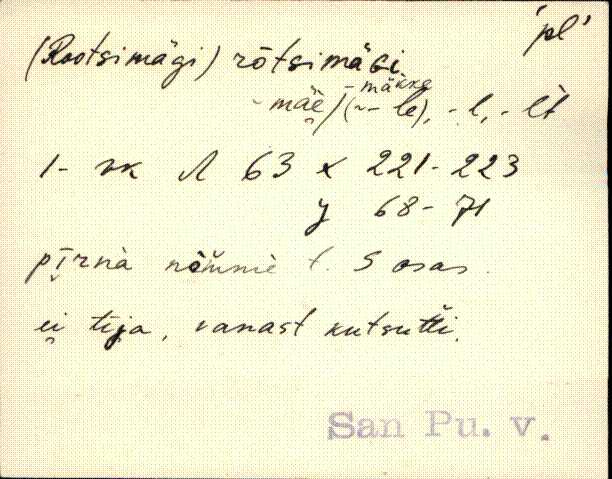 'pl'
(Rootsimägi) rōtsimäGi
- mäkke
- mäe) (-- le), - l, - lt
1- vk Л 63 x 221-223
y 68-71
pīrnà nòmmè t. S osas.
ei tija, vanast kutsutti.
San Pu. v.